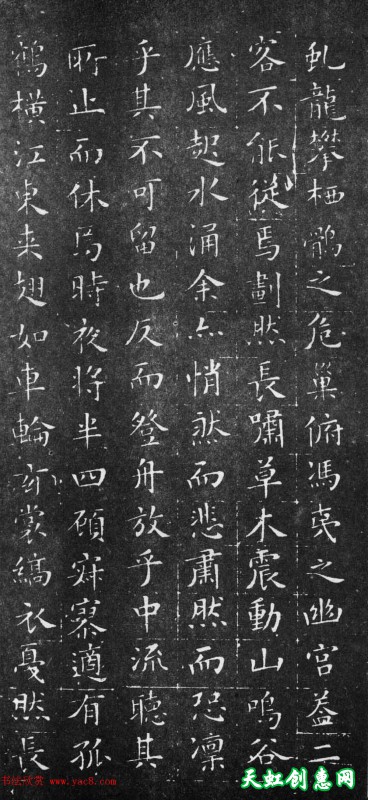 虬龍攀栖鶻之危巢俯馮夷之幽宮蓋二
客不能從焉劃然長嘯草木震動山鳴谷
應風起水涌余亦悄然而悲肅然而恐凜
乎其不可留也反而登舟放乎中流聽其
所止而休焉時夜將半四顧寂寥適有孤
鶴橫江東来翅如車輪玄裳縞衣戛然長
书法欣赏 www.yac8.com
天虹创惠网